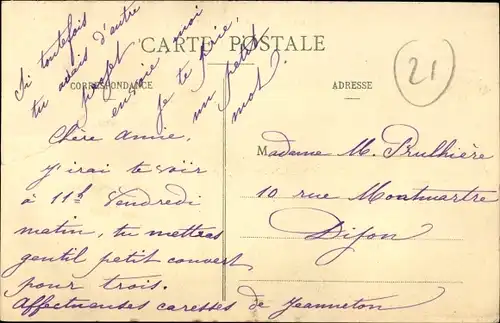 CARTE POSTALE
CORRESPONDANCE
ADRESSE
21
Si toutefois
tu avais d'autre
projet
envoie moi
je te prie,
un petit
mot.
Chère amie,
J'irai te voir
à 11h Vendredi
matin, tu mettras
gentil petit couvert
pour trois.
Affectueuses caresses de Jeanneton
Madame M. Brulhière
10 rue Montmartre
Dijon